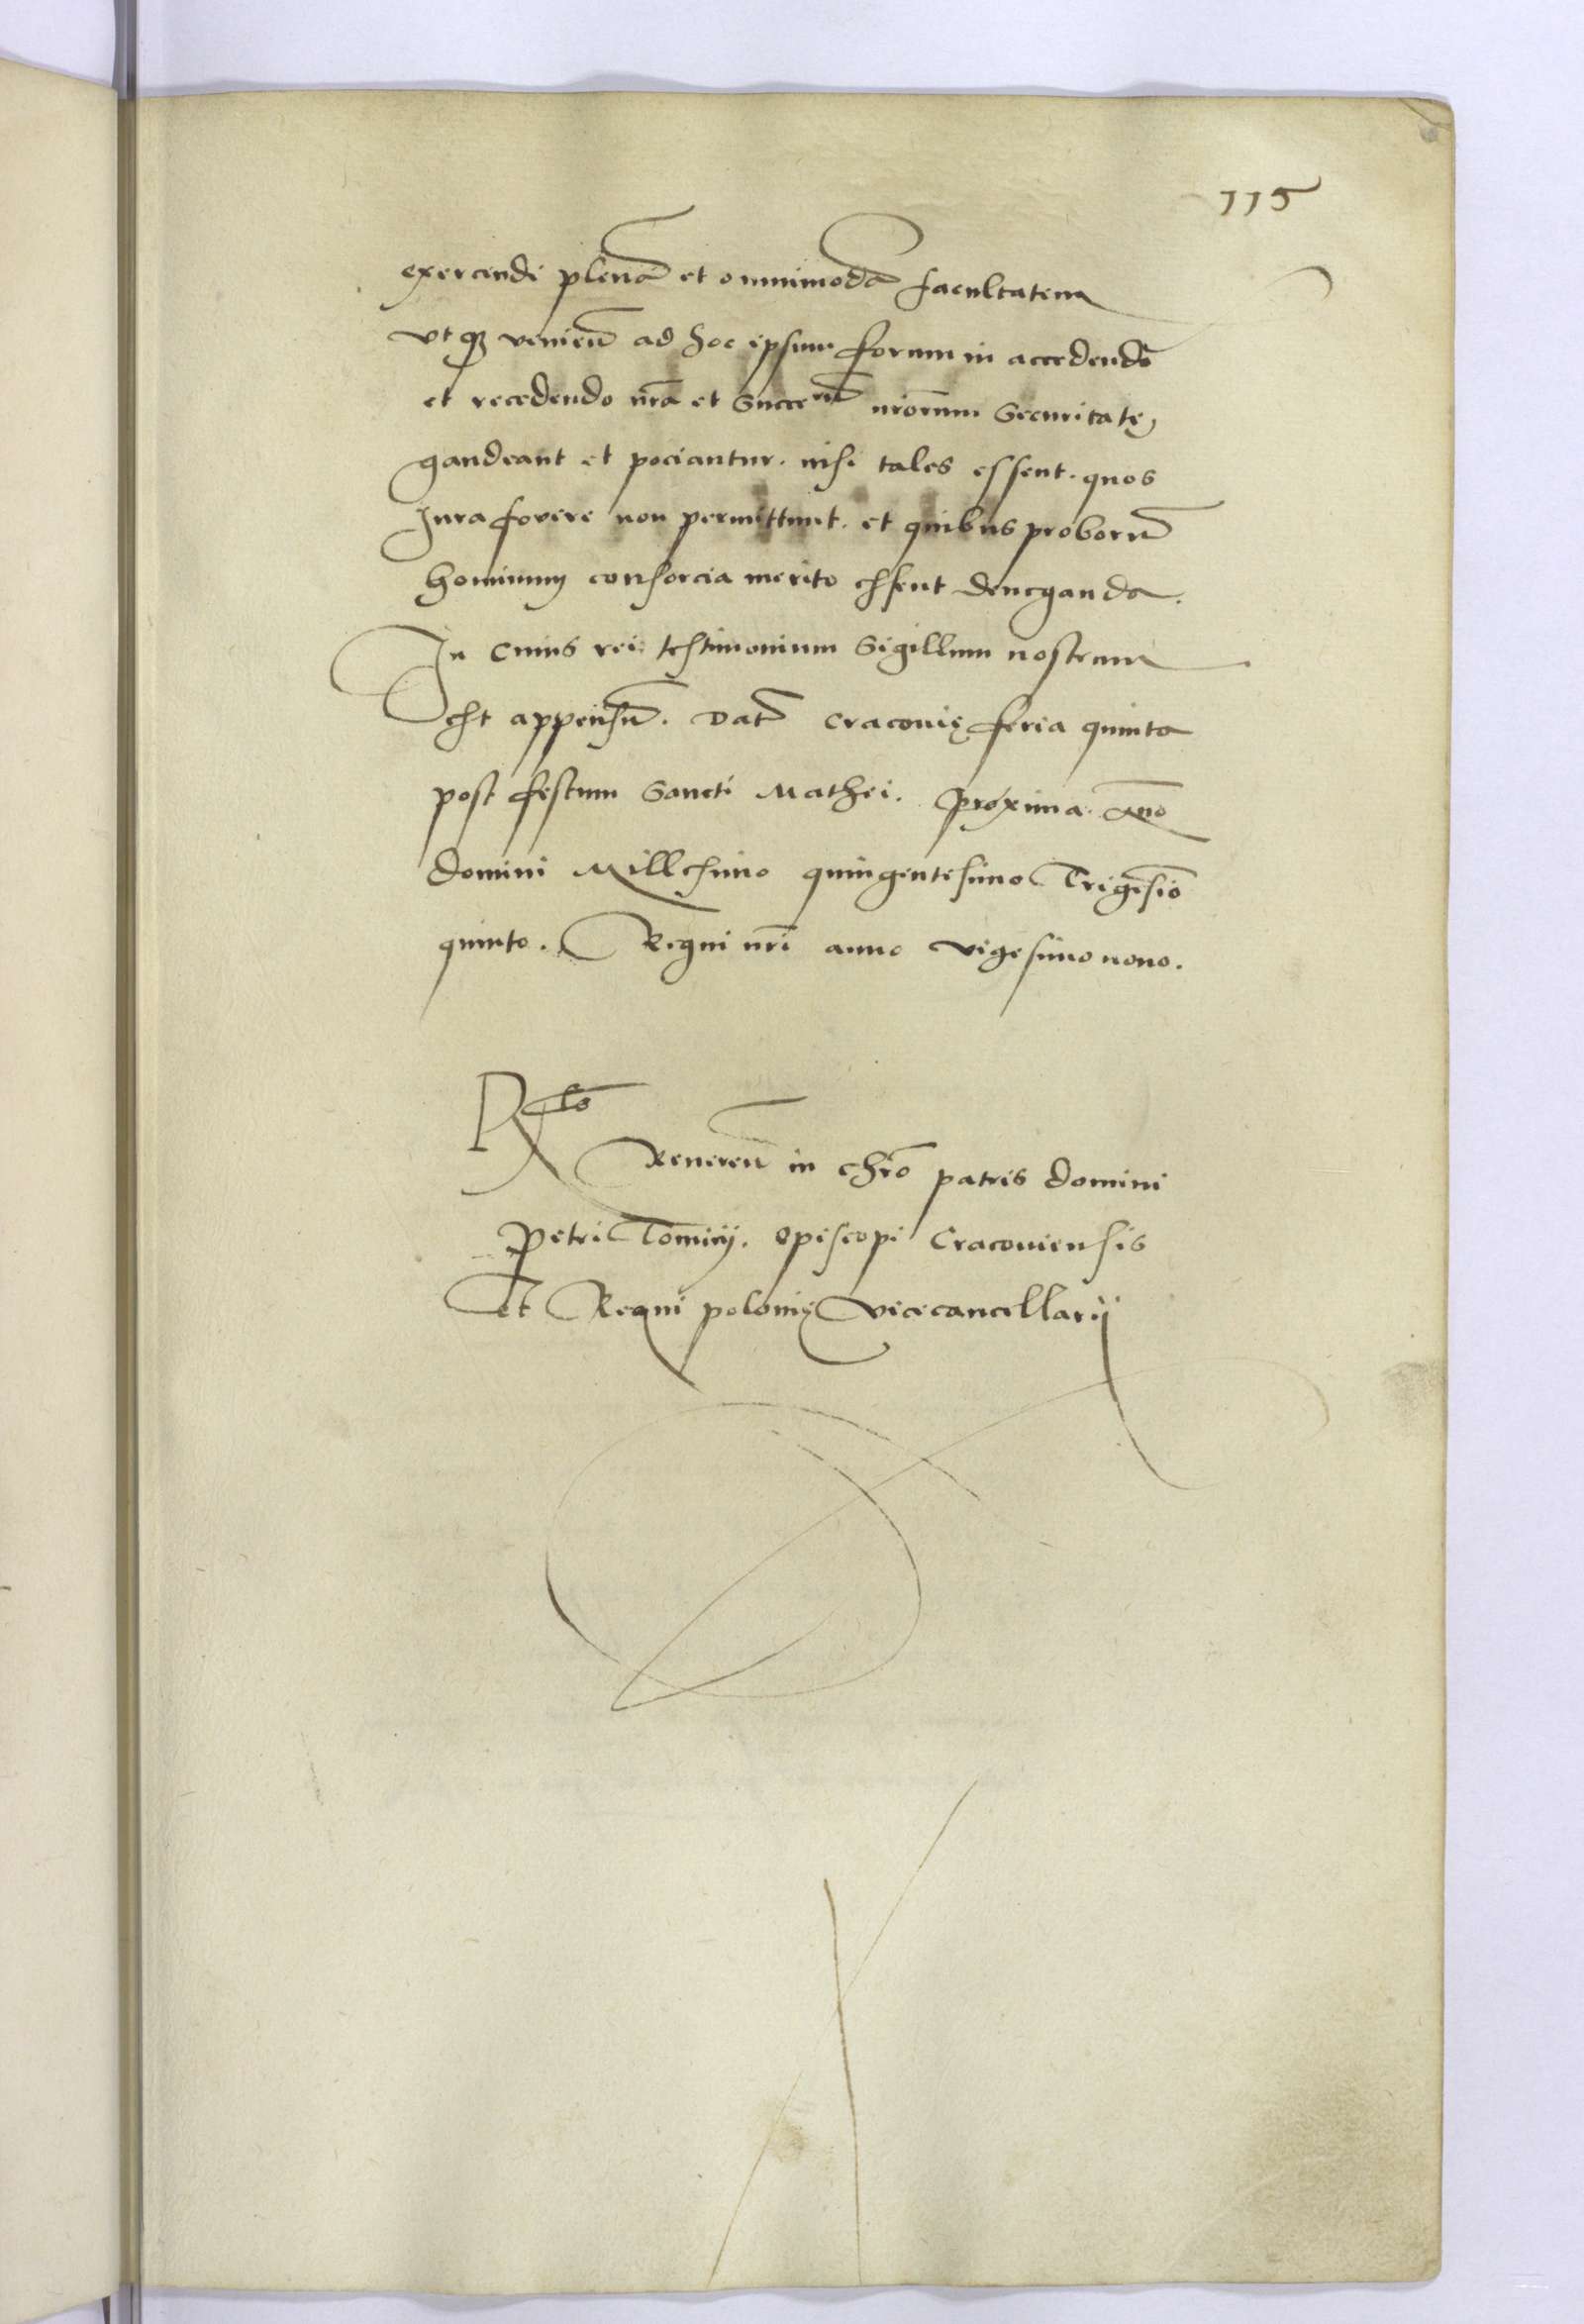 115
exercendi plenā et omnimodā facultatem
vt qȝ venieñ ad hoc ipsum forum in accedendo
et recedendo nr̄a et Succeruͫ nr̄orum Securitate
gaudeant et pociantur. nisi tales essent. quos
Jura fovere non permittunt. et quibus proborū
hominum consorcia merito essent deneganda.
In cuius rei testimonium Sigillum nostrum
est appensū. Dat̄ Cracovię feria quinta
post festum Sancti Mathei. proxima. Anno
domini Millesimo quingentesimo Trigesīo
quinto. Regni nr̄i anno vigesimo nono.
Rlō
Reueren̄ in chrō patris domini
Petri Tomicij. Episcopi Cracouiensis
Et Regni polonię vicecancellarij